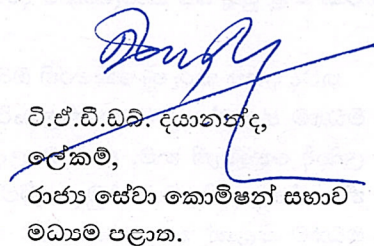 ටී.ඒ.ඩී.ඩබ්. දයානන්ද,
ලේකම්,
රාජ්‍ය සේවා කොමිෂන් සභාව
මධ්‍යම පළාත.